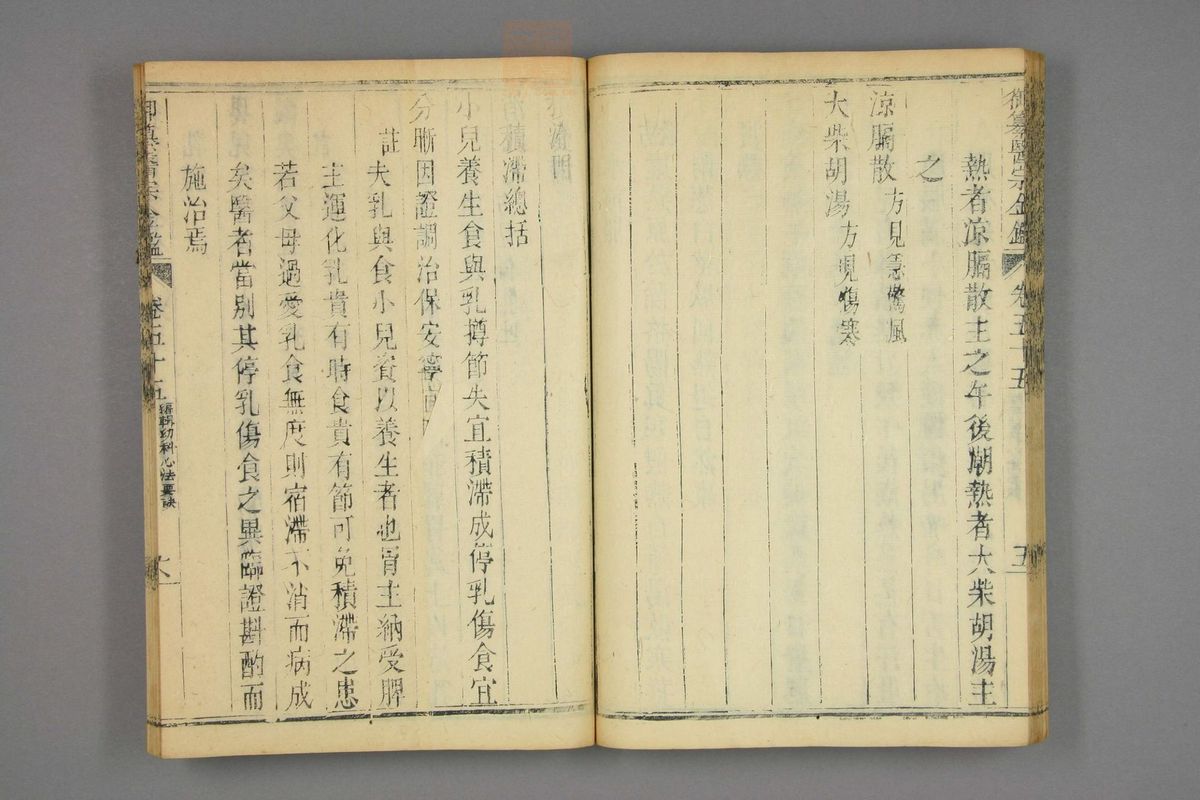 御纂醫宗金鑑 卷五十五 五
熱者涼膈散主之午後潮熱者大柴胡湯主
之
涼膈散 方見急驚風
大柴胡湯 方見傷寒
積滯門
積滯總括
小兒養生食與乳撙節失宜積滯成停乳傷食宜
分晰因證調治保安寧
註夫乳與食小兒資以養生者也胃主納受脾
主運化乳貴有時食貴有節可免積滯之患
若父母過愛乳食無度則宿滯不消而病成
矣醫者當別其停乳傷食之異臨證斟酌而
施治焉
御纂醫宗金鑑 卷五十五 編輯幼科心法要訣 六